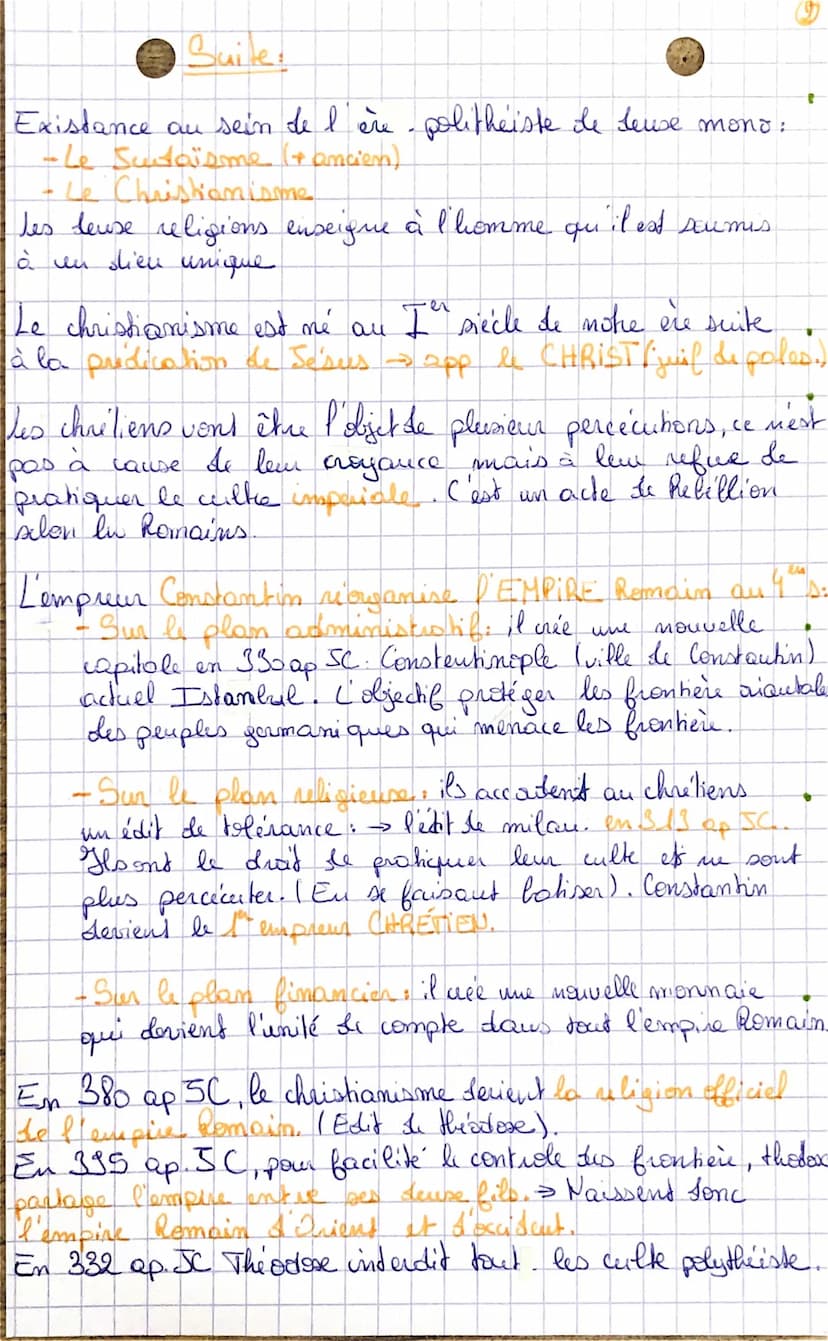 9
Suite:
Existance au sein de l'ère politheiste de deuse mono:
- Le Judaïsme (+ ancien)
- Le Christianisme
les deuse religions enseigne à l'homme qu'il est soumis
à un dieu unique
Le christianisme est né au Ier siécle de notre ère suite
à la prédication de Jésus → app le CHRIST (juif de pales.)
Les chrétiens vont être l'objet de plusieur percécutions, ce n'est
pas à cause de leur croyance mais à leur refue de
pratiquer le culte imperiale. C'est un acte de Rebéllion
selon les Romains.
L'empreur Constantin réorganise l'EMPIRE Romain au 4ème s:
- Sur le plan administratif: il crée une nouvelle
capitale en 330 ap JC. Constentinople (ville de Constantin)
actuel Istanbul. L'objectif protéger les frontière orientale
des peuples germaniques qui menace les frontière.
- Sur le plan religieuse: ils accordent au chrétiens
un édit de tolérance: → l'édit de milan. en 313 ap JC.
Ils ont le droit de pratiquer leur culte et ne sont
plus percécuter. (En se faisant batiser). Constantin
devient le 1er empreur CHRÉTIEN.
- Sur le plan financier: il crée une nouvelle monnaie
qui devient l'unité de compte dans tout l'empire Romain.
En 380 ap JC, le christianisme devient la religion officiel
de l'empire Romain. (Edit de théodose).
En 395 ap. JC, pour facilité le controle des frontière,
partage l'empire entre ses deuse fils. ⇒ Naissent donc
l'empire Romain d'Orient et d'occident.
En 332 ap. JC Théodose interdit tout les culte polythéiste.